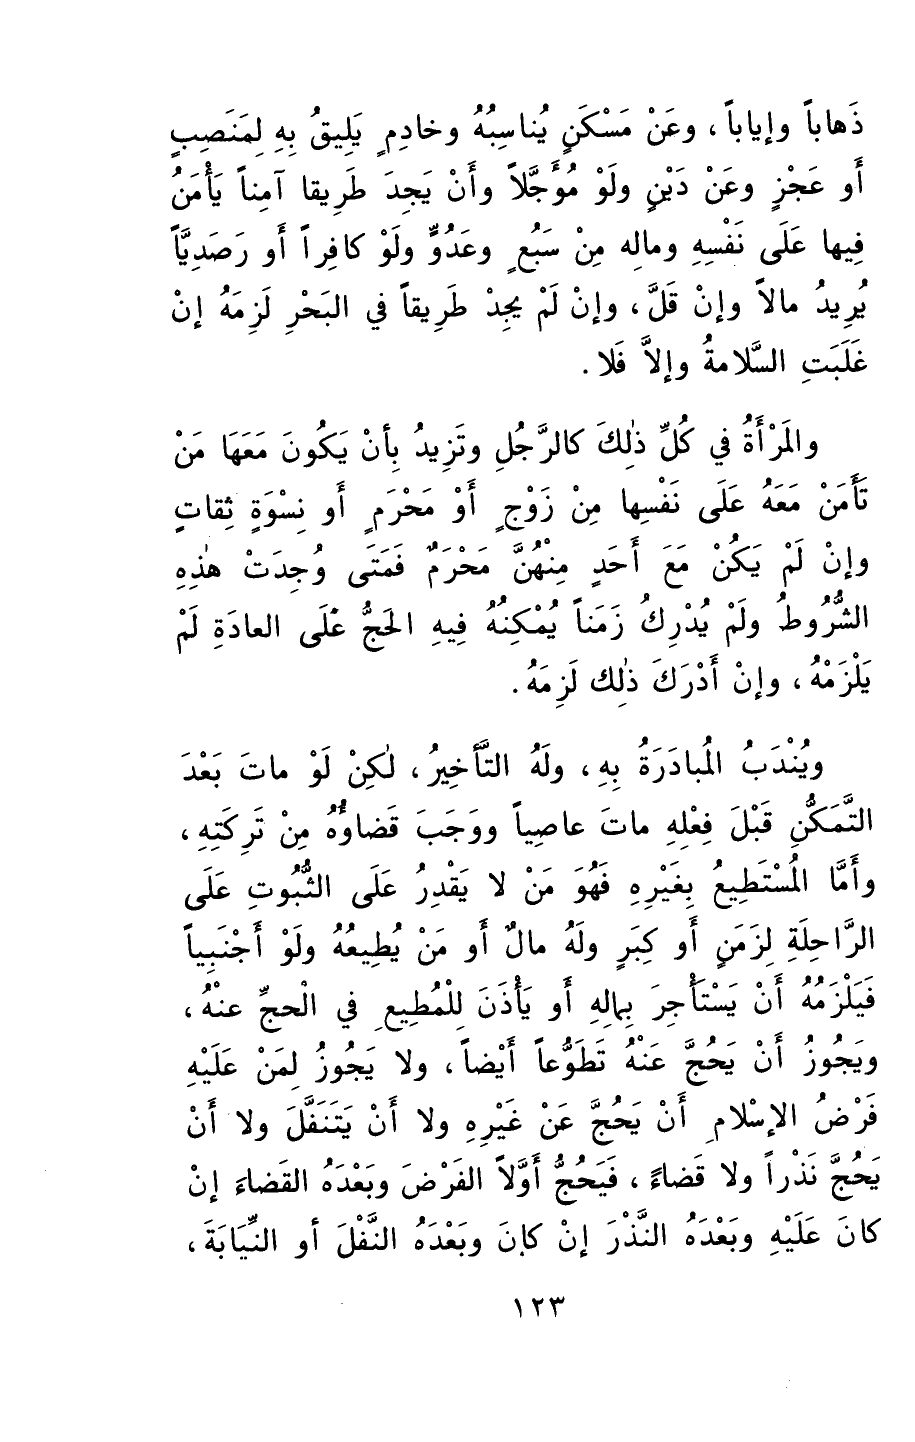 ذَهاباً وإياباً، وعَنْ مَسْكَنٍ يُناسِبُهُ وخادِمٍ يَلِيقُ بِهِ لِمَنَصِبٍ
أَو عَجْزٍ وعَنْ دَيْنٍ ولَوْ مُؤَجَّلاً وأَنْ يَجِدَ طَرِيقا آمِناً يَأْمَنُ
فِيها عَلَى نَفْسِهِ ومالِه مِنْ سَبُعٍ وعَدُوٍّ ولَوْ كافِراً أَو رَصَدِيَّاً
يُرِيدُ مالاً وإنْ قَلَّ، وإنْ لَمْ يجِدْ طَرِيقاً في البَحْرِ لَزِمَهُ إنْ
غَلَبَتِ السَّلامةُ وإلاَّ فَلا.
والمَرْأَةُ في كُلِّ ذٰلِكَ كالرَّجُلِ وتَزِيدُ بِأنْ يَكُونَ مَعَهَا مَنْ
تَأَمَنْ مَعَهُ عَلَى نَفْسِها مِنْ زَوْجٍ أَوْ مَحْرَمٍ أَو نِسْوَةٍ ثِقاتٍ
وإنْ لَمْ يَكُنْ مَعَ أَحَدٍ مِنْهُنَّ مَحْرَمٌ فَمَتَى وُجِدَتْ هٰذِهِ
الشُّرُوطُ ولَمْ يُدْرِكُ زَمَناً يُمْكِنُهُ فِيهِ الحَجُّ عْلَى العادَةِ لَمْ
يَلْزَمْهُ، وإنْ أَدْرَكَ ذٰلِك لَزِمَهُ.
ويُنْدَبُ المُبادَرَةُ بِهِ، ولَهُ التَّأخِيرُ، لٰكِنْ لَوْ ماتَ بَعْدَ
التَّمَكُّنِ قَبْلَ فِعْلِهِ ماتَ عاصِياً ووَجَبَ قَضاوُهُ مِنْ تَرِكَتِهِ،
وأَمَّا المُسْتَطِيعُ بِغَيْرِهِ فَهُوَ مَنْ لا يَقْدِرُ عَلَى الثُّبُوتِ عَلَى
الرَّاحِلَةِ لِزَمَنٍ أَو كِبَرٍ ولَهُ مالٌ أَو مَنْ يُطِيعُهُ ولَوْ أَجْنَبِياً
فَيَلْزَمُهُ أَنْ يَسْتَأْجِرَ بِمالِهِ أَو يَأْذَنَ لِلْمُطِيعِ في الْحجِّ عنْهُ،
ويَجُوزُ أَنْ يَحُجَّ عَنْهُ تَطَوُّعاً أَيْضاً، ولا يَجُوزُ لِمَنْ عَلَيْهِ
فَرْضُ الإسْلامِ أَنْ يَحُجَّ عَنْ غَيْرِهِ ولا أَنْ يَتَنَفَّلَ ولا أَنْ
يَحُجَّ نَذْراً ولا قَضاءً، فَيَحُجُّ أَوَّلاً الفَرْضَ وبَعْدَهُ القَضاءَ إنْ
كانَ عَلَيْهِ وبَعْدَهُ النَّذْرَ إنْ كانَ وبَعْدَهُ النَّفْلَ أو النِّيَابَةَ،
١٢٣